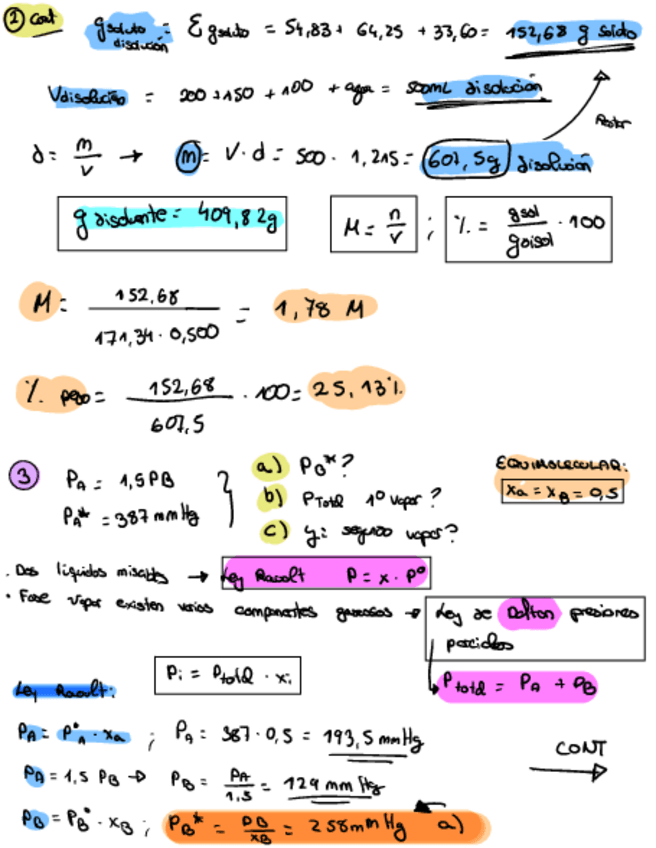 ② Cont g soluto disolución = Σ g soluto = 54,83 + 64,25 + 33,60 = 152,68 g soluto
V disolución = 200 + 150 + 100 + agua = 500mL disolución
d = m/v → m = V · d = 500 · 1,215 = 607,5g disolución
g disolvente = 409,82g
M = n/v ; % = gsol/gdisol · 100
M = 152,68 / 171,34 · 0,500 = 1,78 M
% peso = 152,68 / 607,5 · 100 = 25,13%
③ PA = 1,5 PB
PA* = 387 mmHg
a) PB*?
b) PTotal 1º vapor?
c) yi segundo vapor?
EQUIMOLECULAR:
xa = xB = 0,5
. Dos líquidos miscibles → Ley Raoult P = x · Pº
• Fase vapor existen varios componentes gaseosos → Ley de Dalton presiones parciales
Pi = Ptotal · xi
Ptotal = PA + PB
Ley Raoult:
PA = PºA · xa ; PA = 387 · 0,5 = 193,5 mmHg
PA = 1,5 PB → PB = PA/1,5 = 129 mmHg
CONT
PB = PBº · xB ; PB* = PB/xB = 258mmHg a)